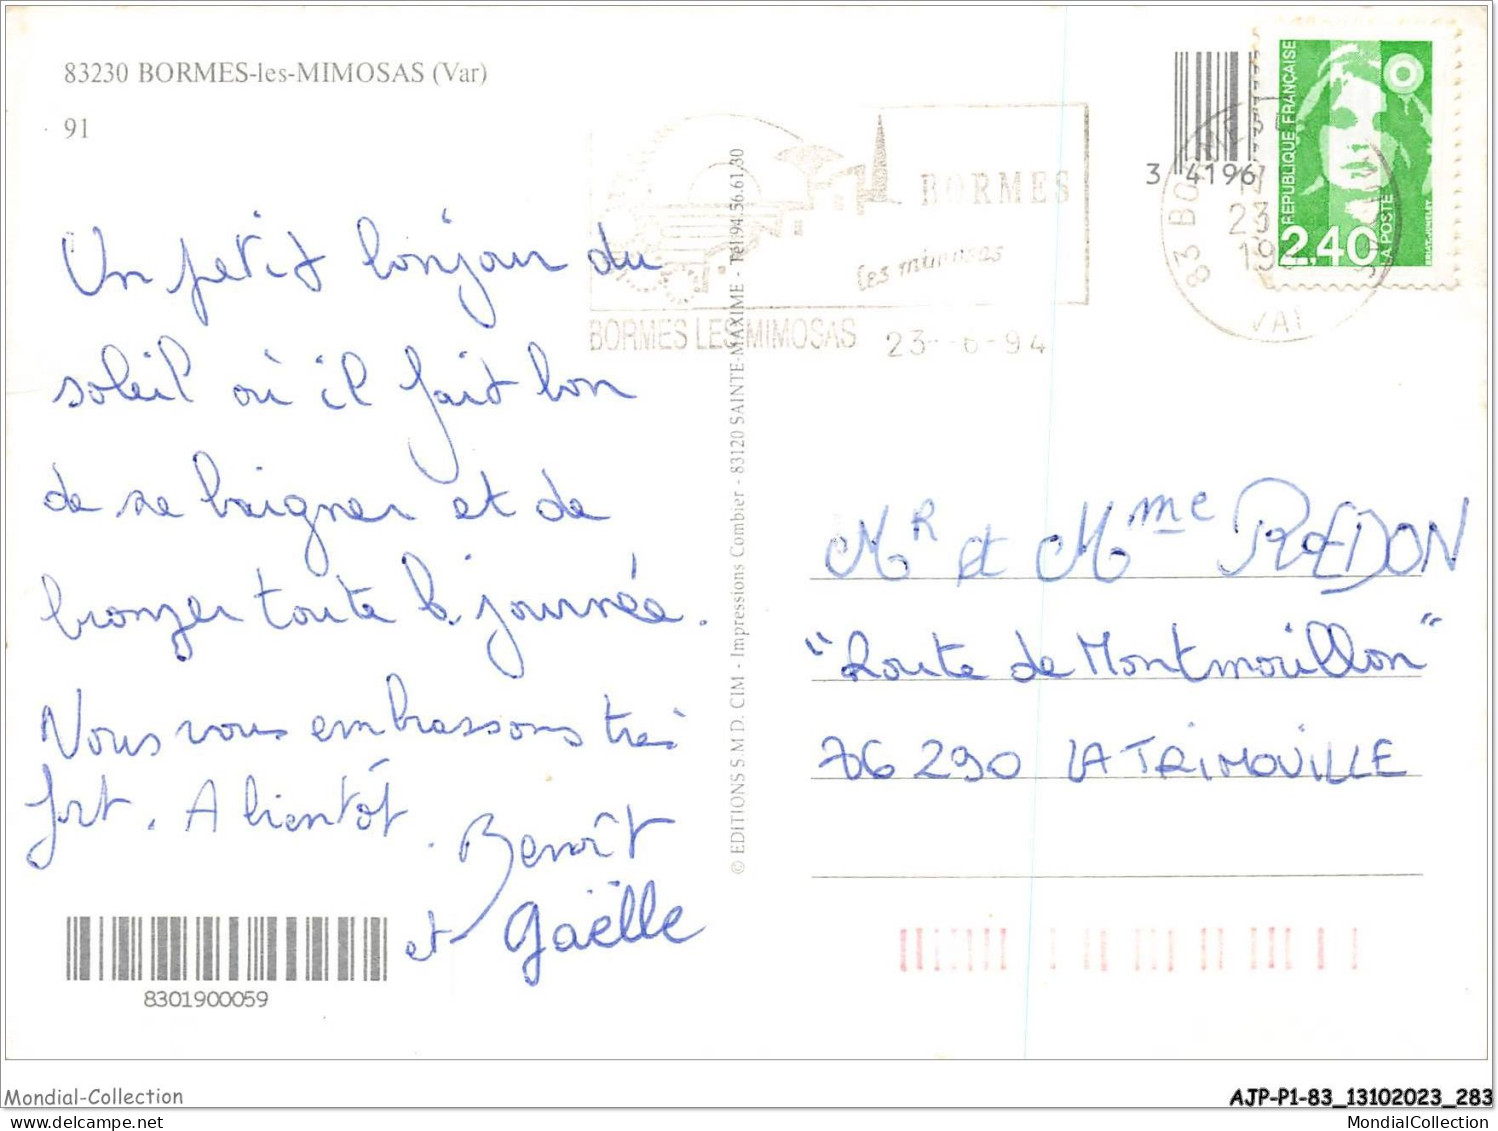 83230 BORMES-les-MIMOSAS (Var)
91
Un petit bonjour du
soleil où il fait bon
de se baigner et de
bronzer toute la journée.
Nous vous embrassons très
fort. A bientôt.
Benoît
et Gaëlle
8301900059
© EDITIONS S.M.D. CIM - Impressions Combier - 83120 SAINTE-MAXIME - Tél.94.56.61.30
BORMES
les mimosas
BORMES LES MIMOSAS 23-6-94
3 4196
RÉPUBLIQUE FRANÇAISE
2,40
LA POSTE
Mr et Mme REDON
"Route de Montmorillon"
86 290 LA TRIMOUILLE
Mondial-Collection
AJP-P1-83_13102023_283
MondialCollection